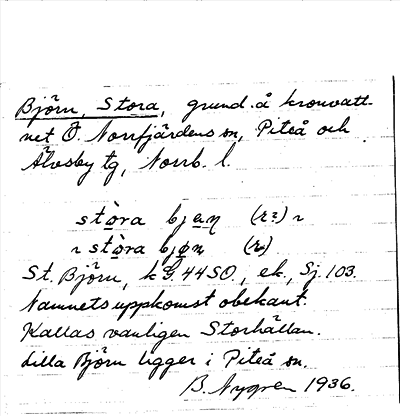 Björn, Stora, grund å kronvatt-
net Ö. Norrfjärdens sn, Piteå och
Älvsby tg, Norrb. l.
stòra bjœn (r2) ~
~ stòra bjøn
St. Björn, k.G. 44SO., ek., Sj. 103.
Namnets uppkomst obekant.
Kallas vanligen Storhällan.
Lilla Björn ligger i Piteå sn.
B. Nygren 1936.